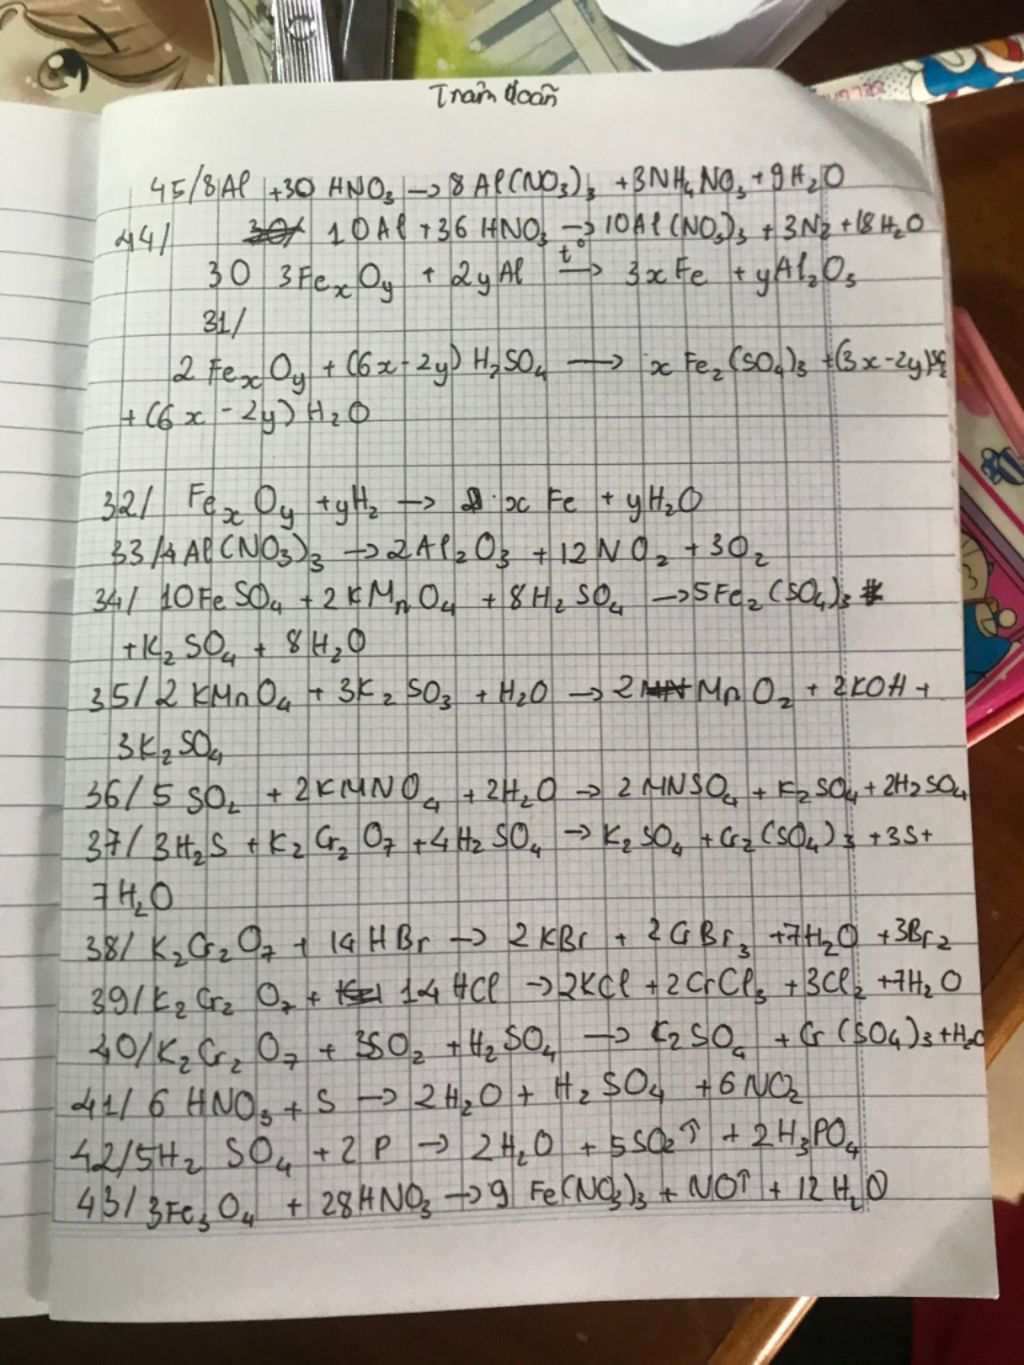 Trâm đoàn
45/8Al +30 HNO₃ → 8 Al(NO₃)₃ +3NH₄NO₃+9H₂O
44/ 10Al+36 HNO₃ → 10Al(NO₃)₃ + 3N₂ +18H₂O
30 3FeₓOy + 2yAl t°→ 3xFe + yAl₂O₃
31/
2 FeₓOy + (6x-2y) H₂SO₄ → x Fe₂(SO₄)₃ +(3x-2y)SO₂
+(6x-2y) H₂O
32/ FeₓOy +yH₂ → x Fe + yH₂O
33/4Al(NO₃)₃ → 2Al₂O₃ + 12NO₂ + 3O₂
34/ 10FeSO₄ +2KMnO₄ + 8H₂SO₄ → 5Fe₂(SO₄)₃
+K₂SO₄ + 8H₂O
35/2 KMnO₄ + 3K₂SO₃ +H₂O → 2 MnO₂ + 2KOH +
3K₂SO₄
36/5 SO₂ + 2KMNO₄ +2H₂O → 2MNSO₄ + K₂SO₄+2H₂SO₄
37/3H₂S +K₂Cr₂O₇ +4H₂SO₄ → K₂SO₄ +Cr₂(SO₄)3 +3S+
7H₂O
38/ K₂Cr₂O₇ + 14HBr → 2KBr + 2CrBr₃ +7H₂O +3Br₂
39/K₂Cr₂O₇ + 14HCl → 2KCl +2CrCl₃ +3Cl₂ +7H₂O
40/K₂Cr₂O₇ + 3SO₂ +H₂SO₄ → K₂SO₄ + Cr(SO₄)₃+H₂O
41/6 HNO₃ + S → 2H₂O + H₂SO₄ +6NO₂
42/5H₂SO₄ +2P → 2H₂O + 5SO₂↑ + 2H₃PO₄
43/3Fe₃O₄ + 28HNO₃ → 9 Fe(NO₃)₃ + NO↑ + 12 H₂O